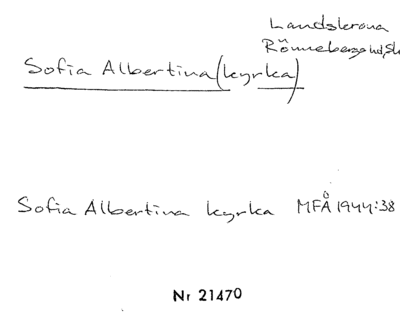 Landskrona
Rönnebergs hd, Sk
Sofia Albertina (kyrka)
Sofia Albertina kyrka MFÅ 1944:38
Nr 21470